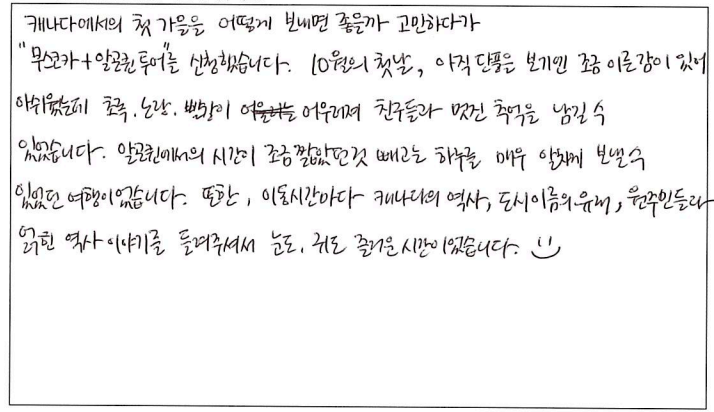 캐나다에서의 첫 가을을 어떻게 보내면 좋을까 고민하다가
"무스코카+알곤퀸 투어"를 신청했습니다. 10월의 첫날, 아직 단풍은 보기엔 조금 이른감이 있어
아쉬웠는데 초록, 노랑, 빨강이 어우러져 친구들과 멋진 추억을 남길 수
있었습니다. 알곤퀸에서의 시간이 조금 짧았던것 빼고는 하루를 매우 알차게 보낼 수
있었던 여행이었습니다. 또한, 이동시간마다 캐나다의 역사, 도시이름의 유래, 원주민들과
얽힌 역사 이야기를 들려주셔서 눈도, 귀도 즐거운 시간이었습니다.